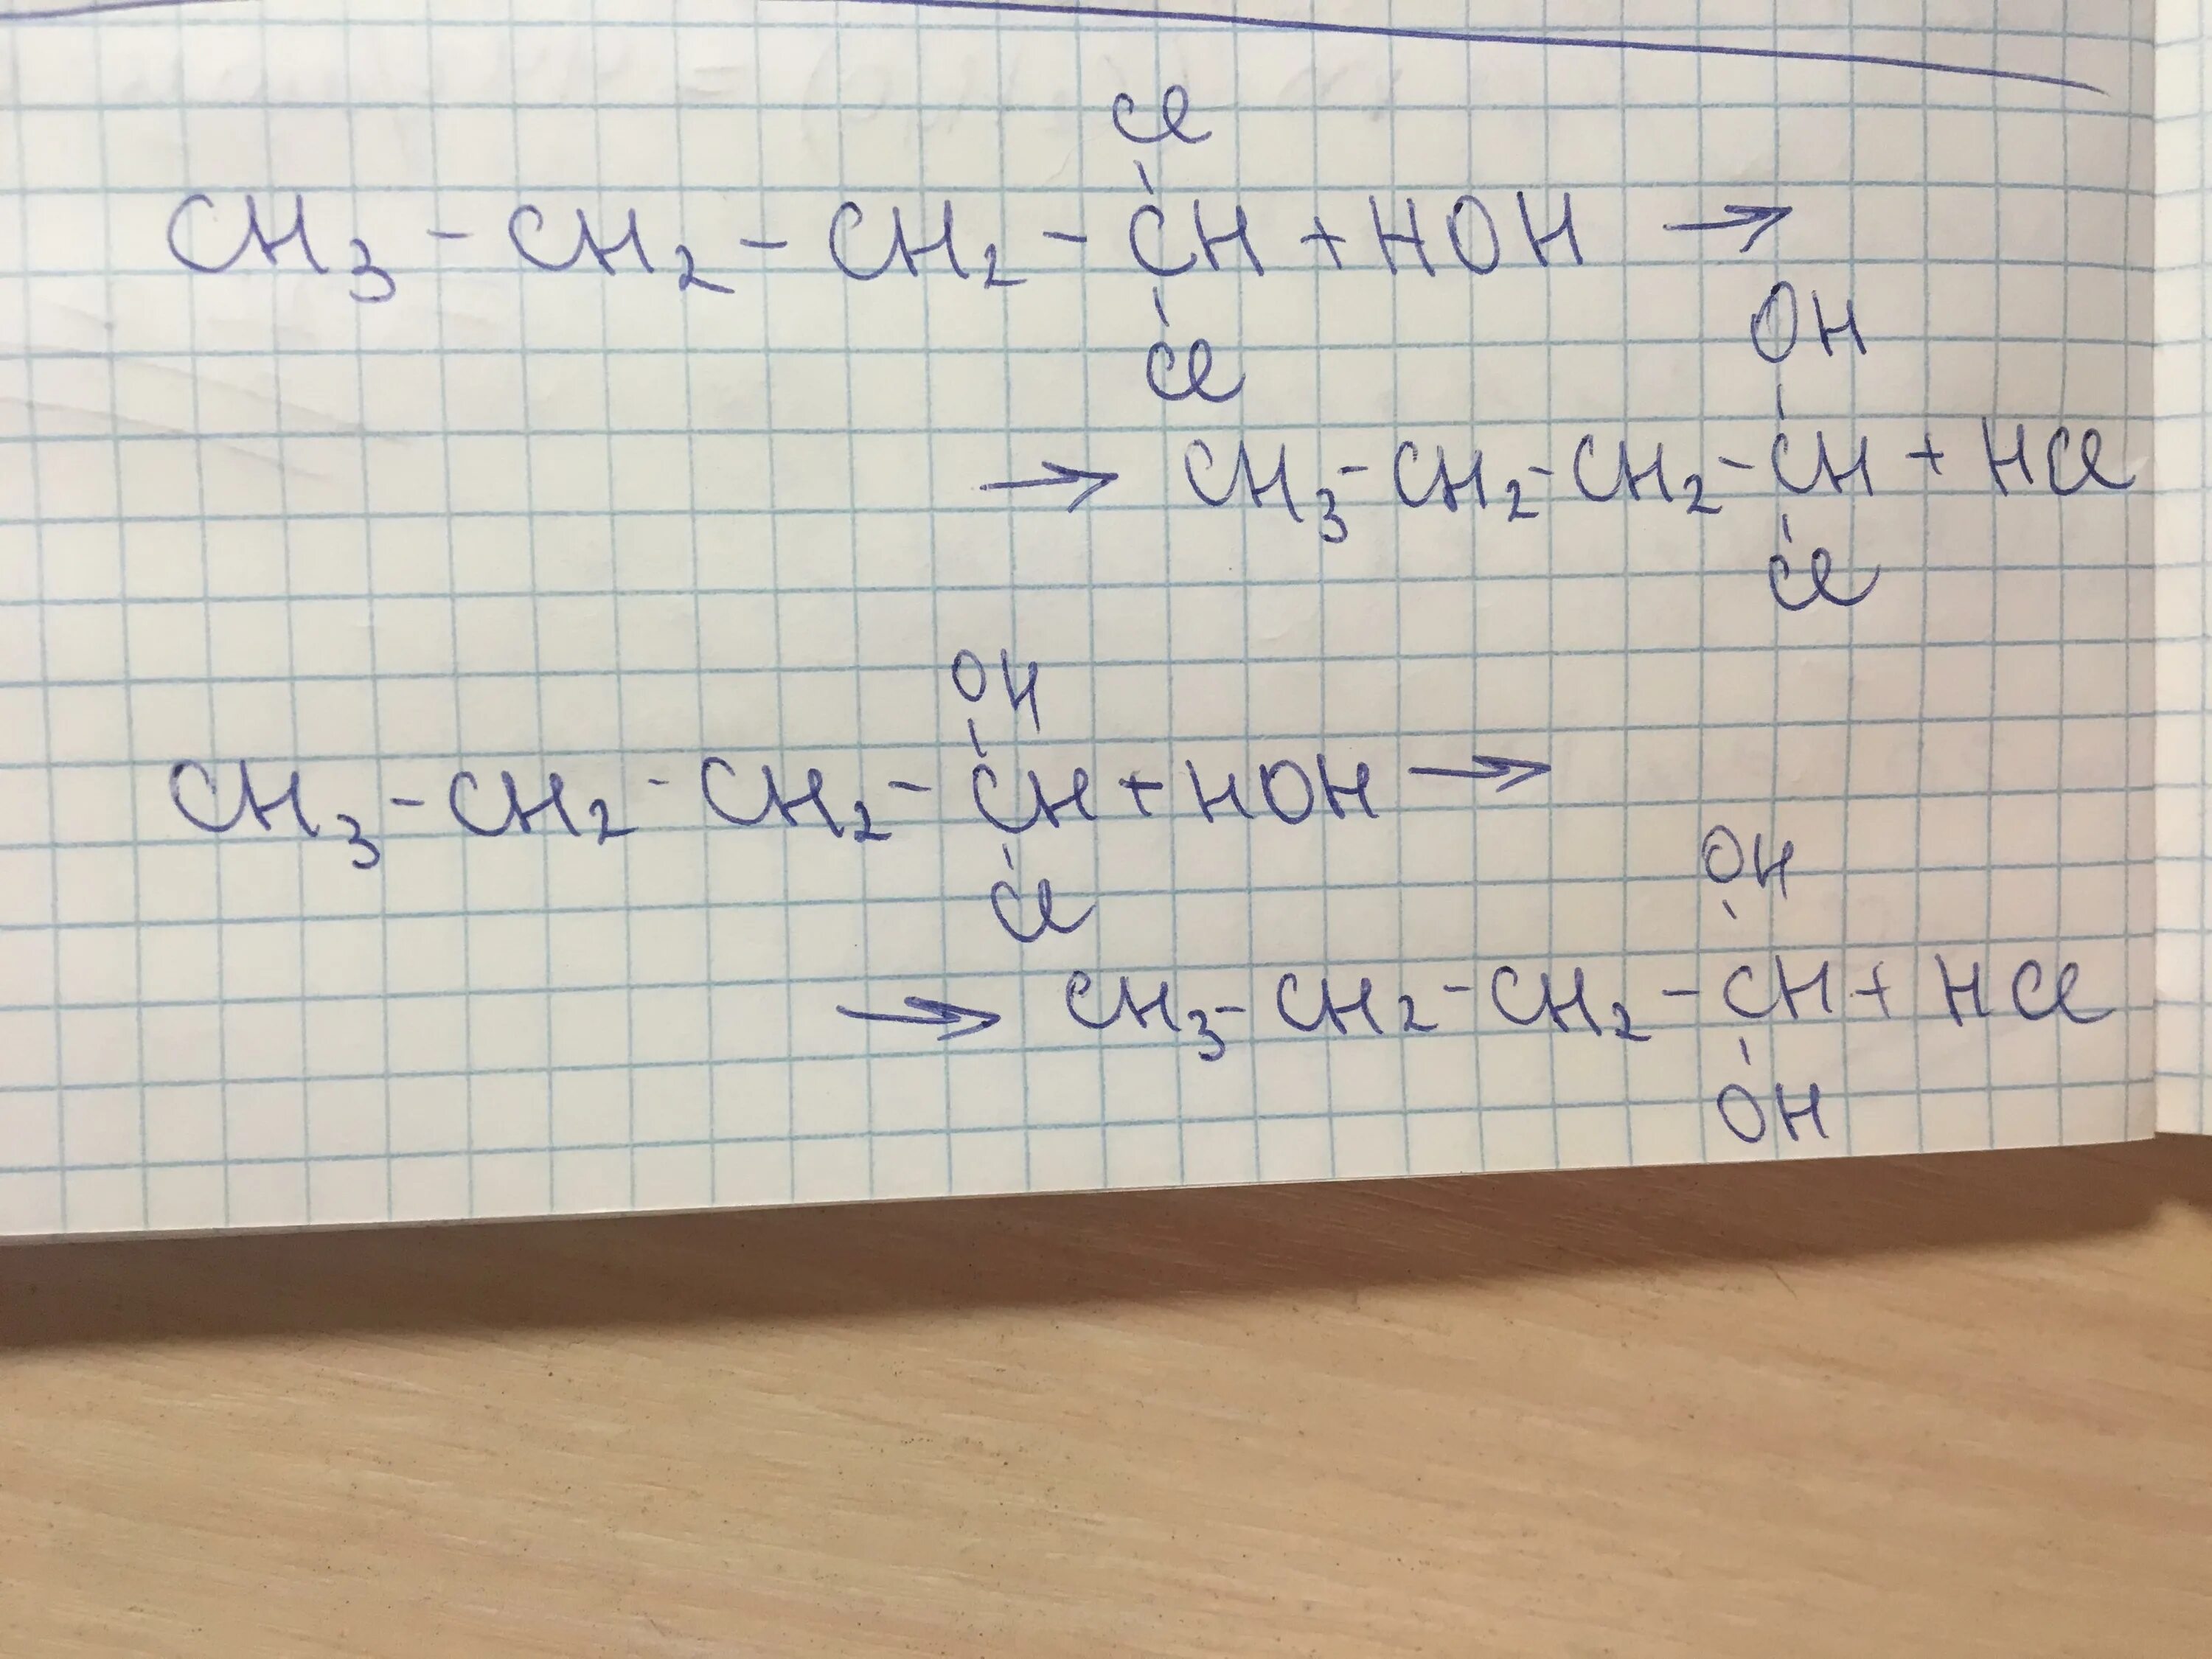 Cl
CH3 - CH2 - CH2 - CH + HOH →
Cl
OH
→ CH3 - CH2 - CH2 - CH + HCl
Cl
OH
CH3 - CH2 - CH2 - CH + HOH →
Cl
OH
→ CH3 - CH2 - CH2 - CH + HCl
OH